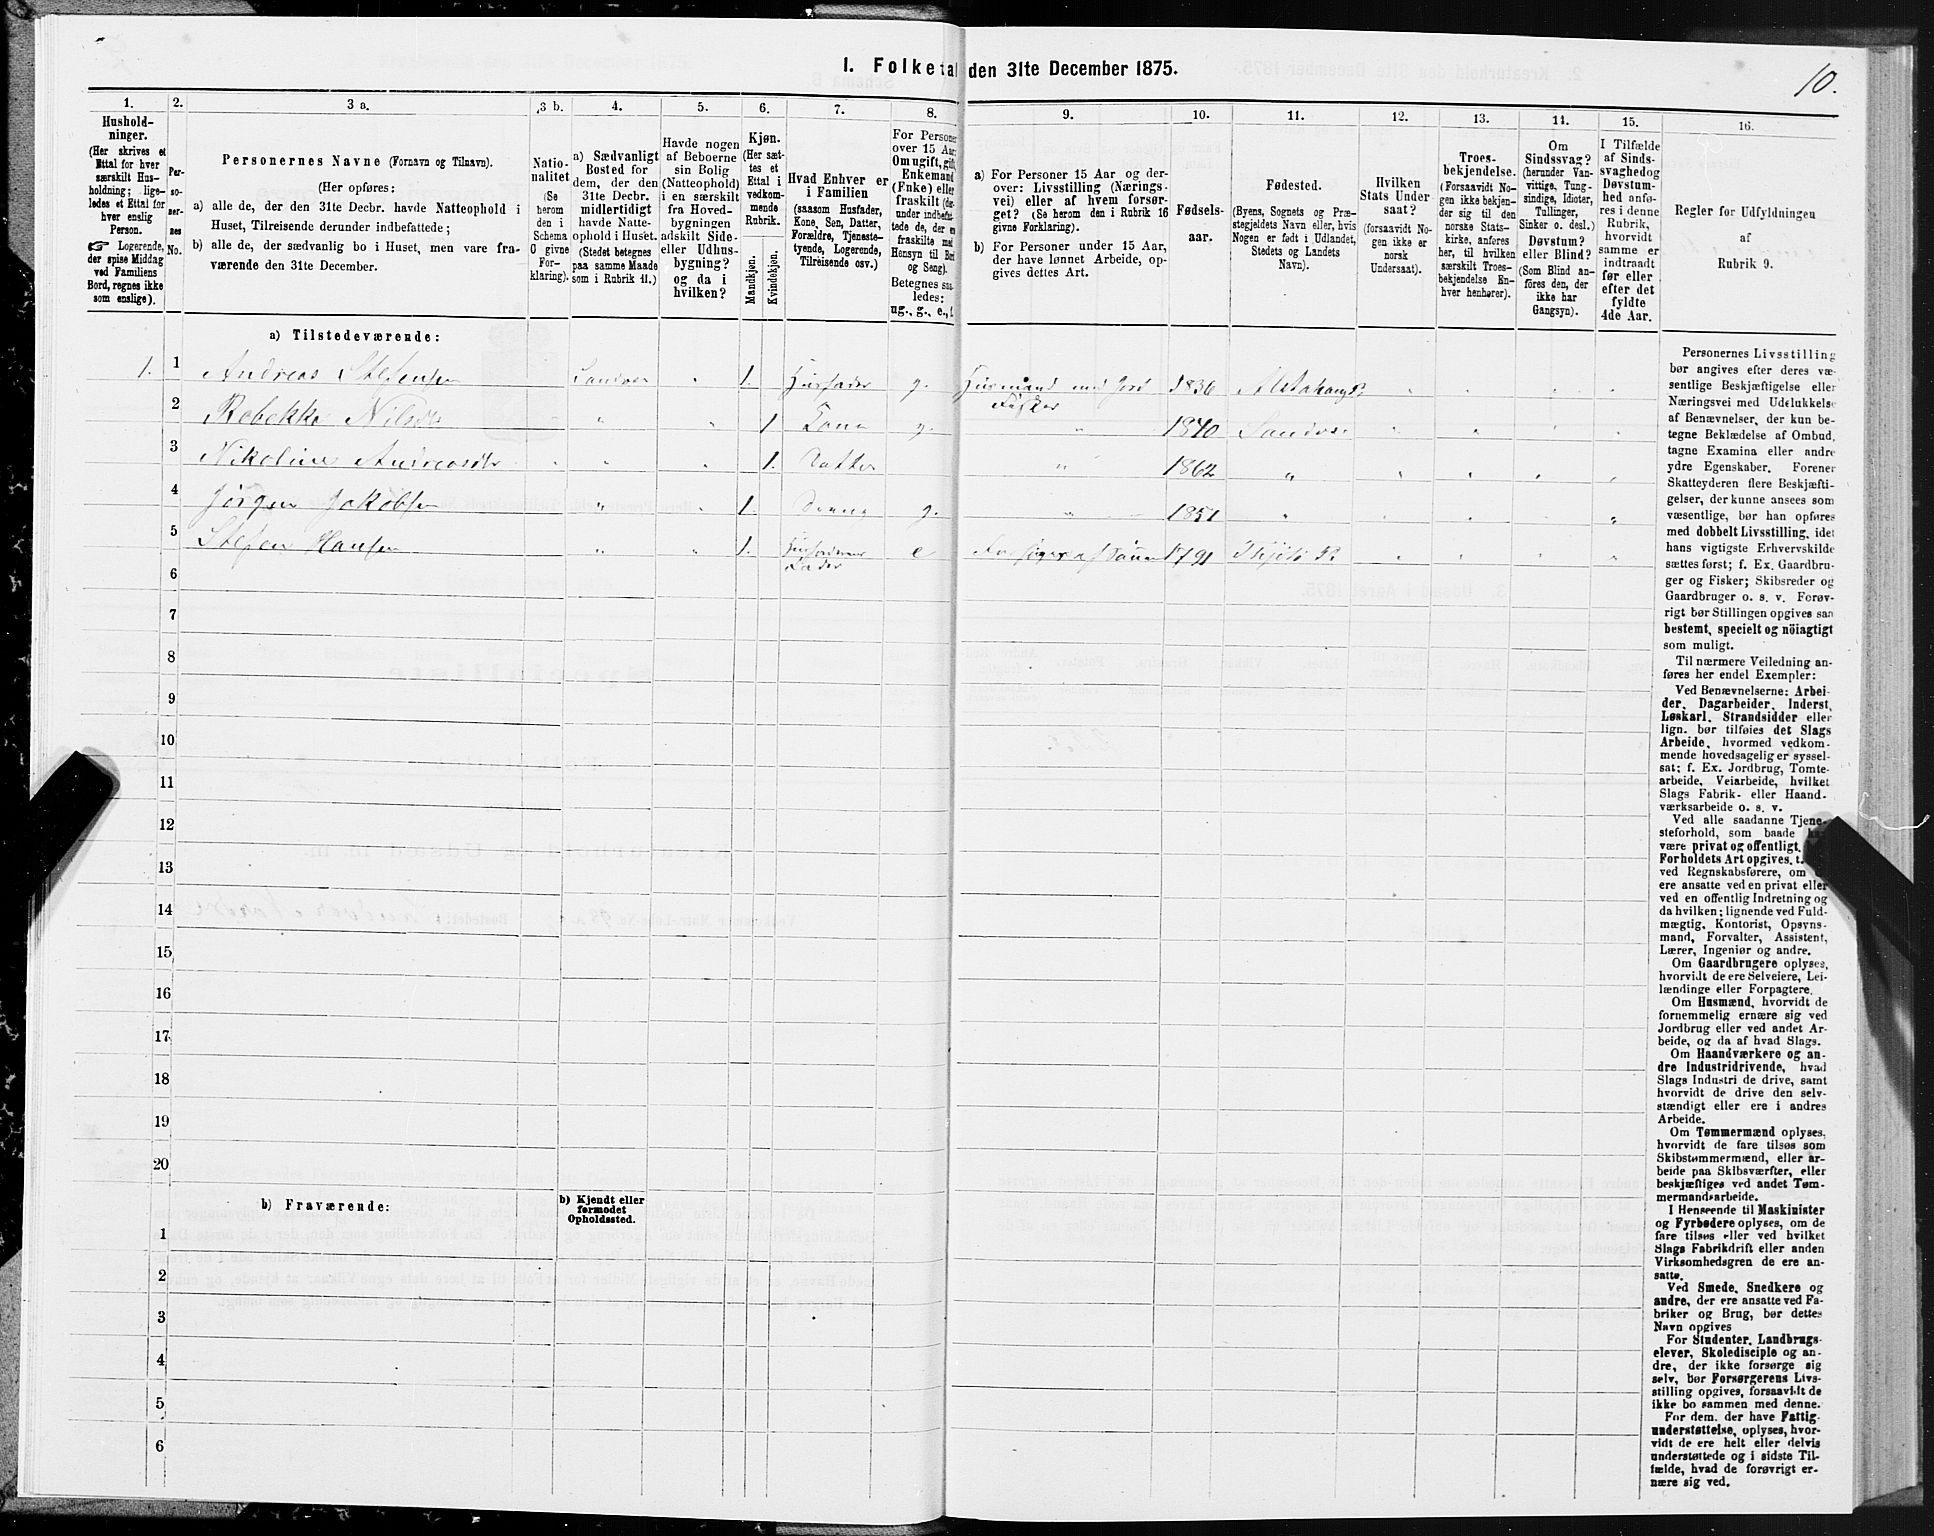 10.
I. Folketal den 31te December 1875.
1.
Hushold-
ninger.
(Her skrives et
Ettal for hver
særskilt Hus-
holdning; lige-
ledes et Ettal for
hver enslig
Person.
☞ Logerende,
der spise Middag
ved Familiens
Bord, regnes ikke
som enslige).
2.
Per-
so-
ner-
nes
No.
3 a.
Personernes Navne (Fornavn og Tilnavn).
(Her opføres:
a) alle de, der den 31te Decbr. havde Natteophold i
Huset, Tilreisende derunder indbefattede;
b) alle de, der sædvanlig bo i Huset, men vare fra-
værende den 31te December.
3 b.
Natio-
nalitet
(Se
herom
den i
Schema
O givne
For-
klaring).
4.
a) Sædvanligt
Bosted for
dem, der den
31te Decbr.
midlertidigt
havde Natte-
ophold i Huset.
(Stedet betegnes
paa samme Maade
som i Rubrik 11.)
5.
Havde nogen
af Beboerne
sin Bolig
(Natteophold)
i en særskilt
fra Hoved-
bygningen
adskilt Side-
eller Udhus-
bygning?
og da i
hvilken?
6.
Kjøn.
(Her sæt-
tes et
Ettal i
vedkom-
mende
Rubrik.
Mandkjøn.
Kvindekjøn.
7.
Hvad Enhver er
i Familien
(saasom Husfader,
Kone, Søn, Datter,
Forældre, Tjeneste-
tyende, Logerende,
Tilreisende osv.)
8.
For Personer
over 15 Aar:
Om ugift, gift,
Enkemand
(Enke) eller
fraskilt (der-
under indbefat-
tede de, der er
fraskilte med
Hensyn til Bord
og Seng).
Betegnes saa-
ledes:
ug., g., e., f.
9.
a) For Personer 15 Aar og der-
over: Livsstilling (Nærings-
vei) eller af hvem forsør-
get? (Se herom den i Rubrik 16
givne Forklaring).
b) For Personer under 15 Aar,
der have lønnet Arbeide, op-
gives dettes Art.
10.
Fødsels-
aar.
11.
Fødested.
(Byens, Sognets og Præ-
stegjeldets Navn eller, hvis
Nogen er født i Udlandet,
Stedets og Landets
Navn).
12.
Hvilken
Stats Under-
saat?
(forsaavidt No-
gen ikke er
norsk
Undersaat).
13.
Troes-
bekjendelse.
(Forsaavidt No-
gen ikke bekjen-
der sig til den
norske Stats-
kirke, anføres
her, til hvilken
særskilt Troes-
bekjendelse En-
hver henhører).
14.
Om
Sindssvag?
(herunder Van-
vittige, Tung-
sindige, Idioter,
Tullinger,
Sinker o. desl.)
Døvstum?
eller Blind?
(Som Blind an-
føres den, der
ikke har
Gangsyn).
15.
I Tilfælde
af Sinds-
svaghed og
Døvstum-
hed anfø-
res i denne
Rubrik,
hvorvidt
samme er
indtraadt
før eller
efter det
fyldte
4de Aar.
16.
Regler for Udfyldningen
af
Rubrik 9.
a) Tilstedeværende:
1. 1 Andreas Stefensen Sandvær " 1. Husfader g. Husmand med Jord Fisker 1836 Alstahaug
2 Rebekka Nilsdtr " " 1 Kone g. " 1840 Sandvær
3 Nikoline Andreasdtr " " 1. Datter " 1862 "
4 Jørgen Jakobsen " " 1. g. " 1851 "
5 Stefen Hansen " " 1. Husfaderens Fader e 1791
6
7
8
9
10
11
12
13
14
15
16
17
18
19
20
b) Fraværende:
b) Kjendt eller
formodet
Opholdssted.
1
2
3
4
5
6
Personernes Livsstilling
bør angives efter deres væ-
sentlige Beskjæftigelse eller
Næringsvei med Udelukkelse
af Benævnelser, der kun be-
tegne Beklædelse af Ombud,
tagne Examina eller andre
ydre Egenskaber. Forener
Skatteyderen flere Beskjæfti-
gelser, der kunne ansees som
væsentlige, bør han opføres
med dobbelt Livsstilling, idet
hans vigtigste Erhvervskilde
sættes først; f. Ex. Gaardbru-
ger og Fisker; Skibsreder og
Gaardbruger o. s. v. Forøv-
rigt bør Stillingen opgives saa
bestemt, specielt og nöiagtigt
som muligt.
Til nærmere Veiledning an-
føres her endel Exempler:
Ved Benævnelserne: Arbei-
der, Dagarbeider, Inderst,
Løskarl, Strandsidder eller
lign. bør tilføies det Slags
Arbeide, hvormed vedkom-
mende hovedsagelig er syssel-
sat; f. Ex. Jordbrug, Tomte-
arbeide, Veiarbeide, hvilket
Slags Fabrik- eller Haand-
værksarbeide o. s. v.
Ved alle saadanne Tjene-
steforhold, som baade
være privat og offentligt,
Forholdets Art opgives, t.
ved Regnskabsførere, om
ere ansatte ved en privat eller
ved en offentlig Indretning og
da hvilken; lignende ved Fuld-
mægtig, Kontorist, Opsyns-
mand, Forvalter, Assistent,
Lærer, Ingeniør og andre.
Om Gaardbrugere oplyses,
hvorvidt de ere Selveiere, Lei-
lændinge eller Forpagtere.
Om Husmænd, hvorvidt de
fornemmelig ernære sig ved
Jordbrug eller ved andet Ar-
beide, og da af hvad Slags.
Om Haandværkere og an-
dre Industridrivende, hvad
Slags Industri de drive, samt
hvorvidt de drive den selv-
stændigt eller ere i andres
Arbeide.
Om Tømmermænd oplyses,
hvorvidt de fare tilsøs som
Skibstømmermænd, eller ar-
beide paa Skibsværfter, eller
beskjæftiges ved andet Tøm-
mermandsarbeide.
I Henseende til Maskinister
og Fyrbødere oplyses, om de
fare tilsøs eller ved hvilket
Slags Fabrikdrift eller anden
Virksomhedsgren de ere an-
satte.
Ved Smede, Snedkere og
andre, der ere ansatte ved Fa-
briker og Brug, bør dettes
Navn opgives
For Studenter, Landbrugs-
elever, Skoledisciple og an-
dre, der ikke forsørge sig
selv, bør Forsørgerens Livs-
stilling opgives, forsaavidt de
ikke bo sammen med denne.
For dem, der have Fattig-
understøttelse, oplyses, hvor-
vidt de ere helt eller delvis
understøttede og i sidste Til-
fælde, hvad de forøvrigt er-
nære sig ved.